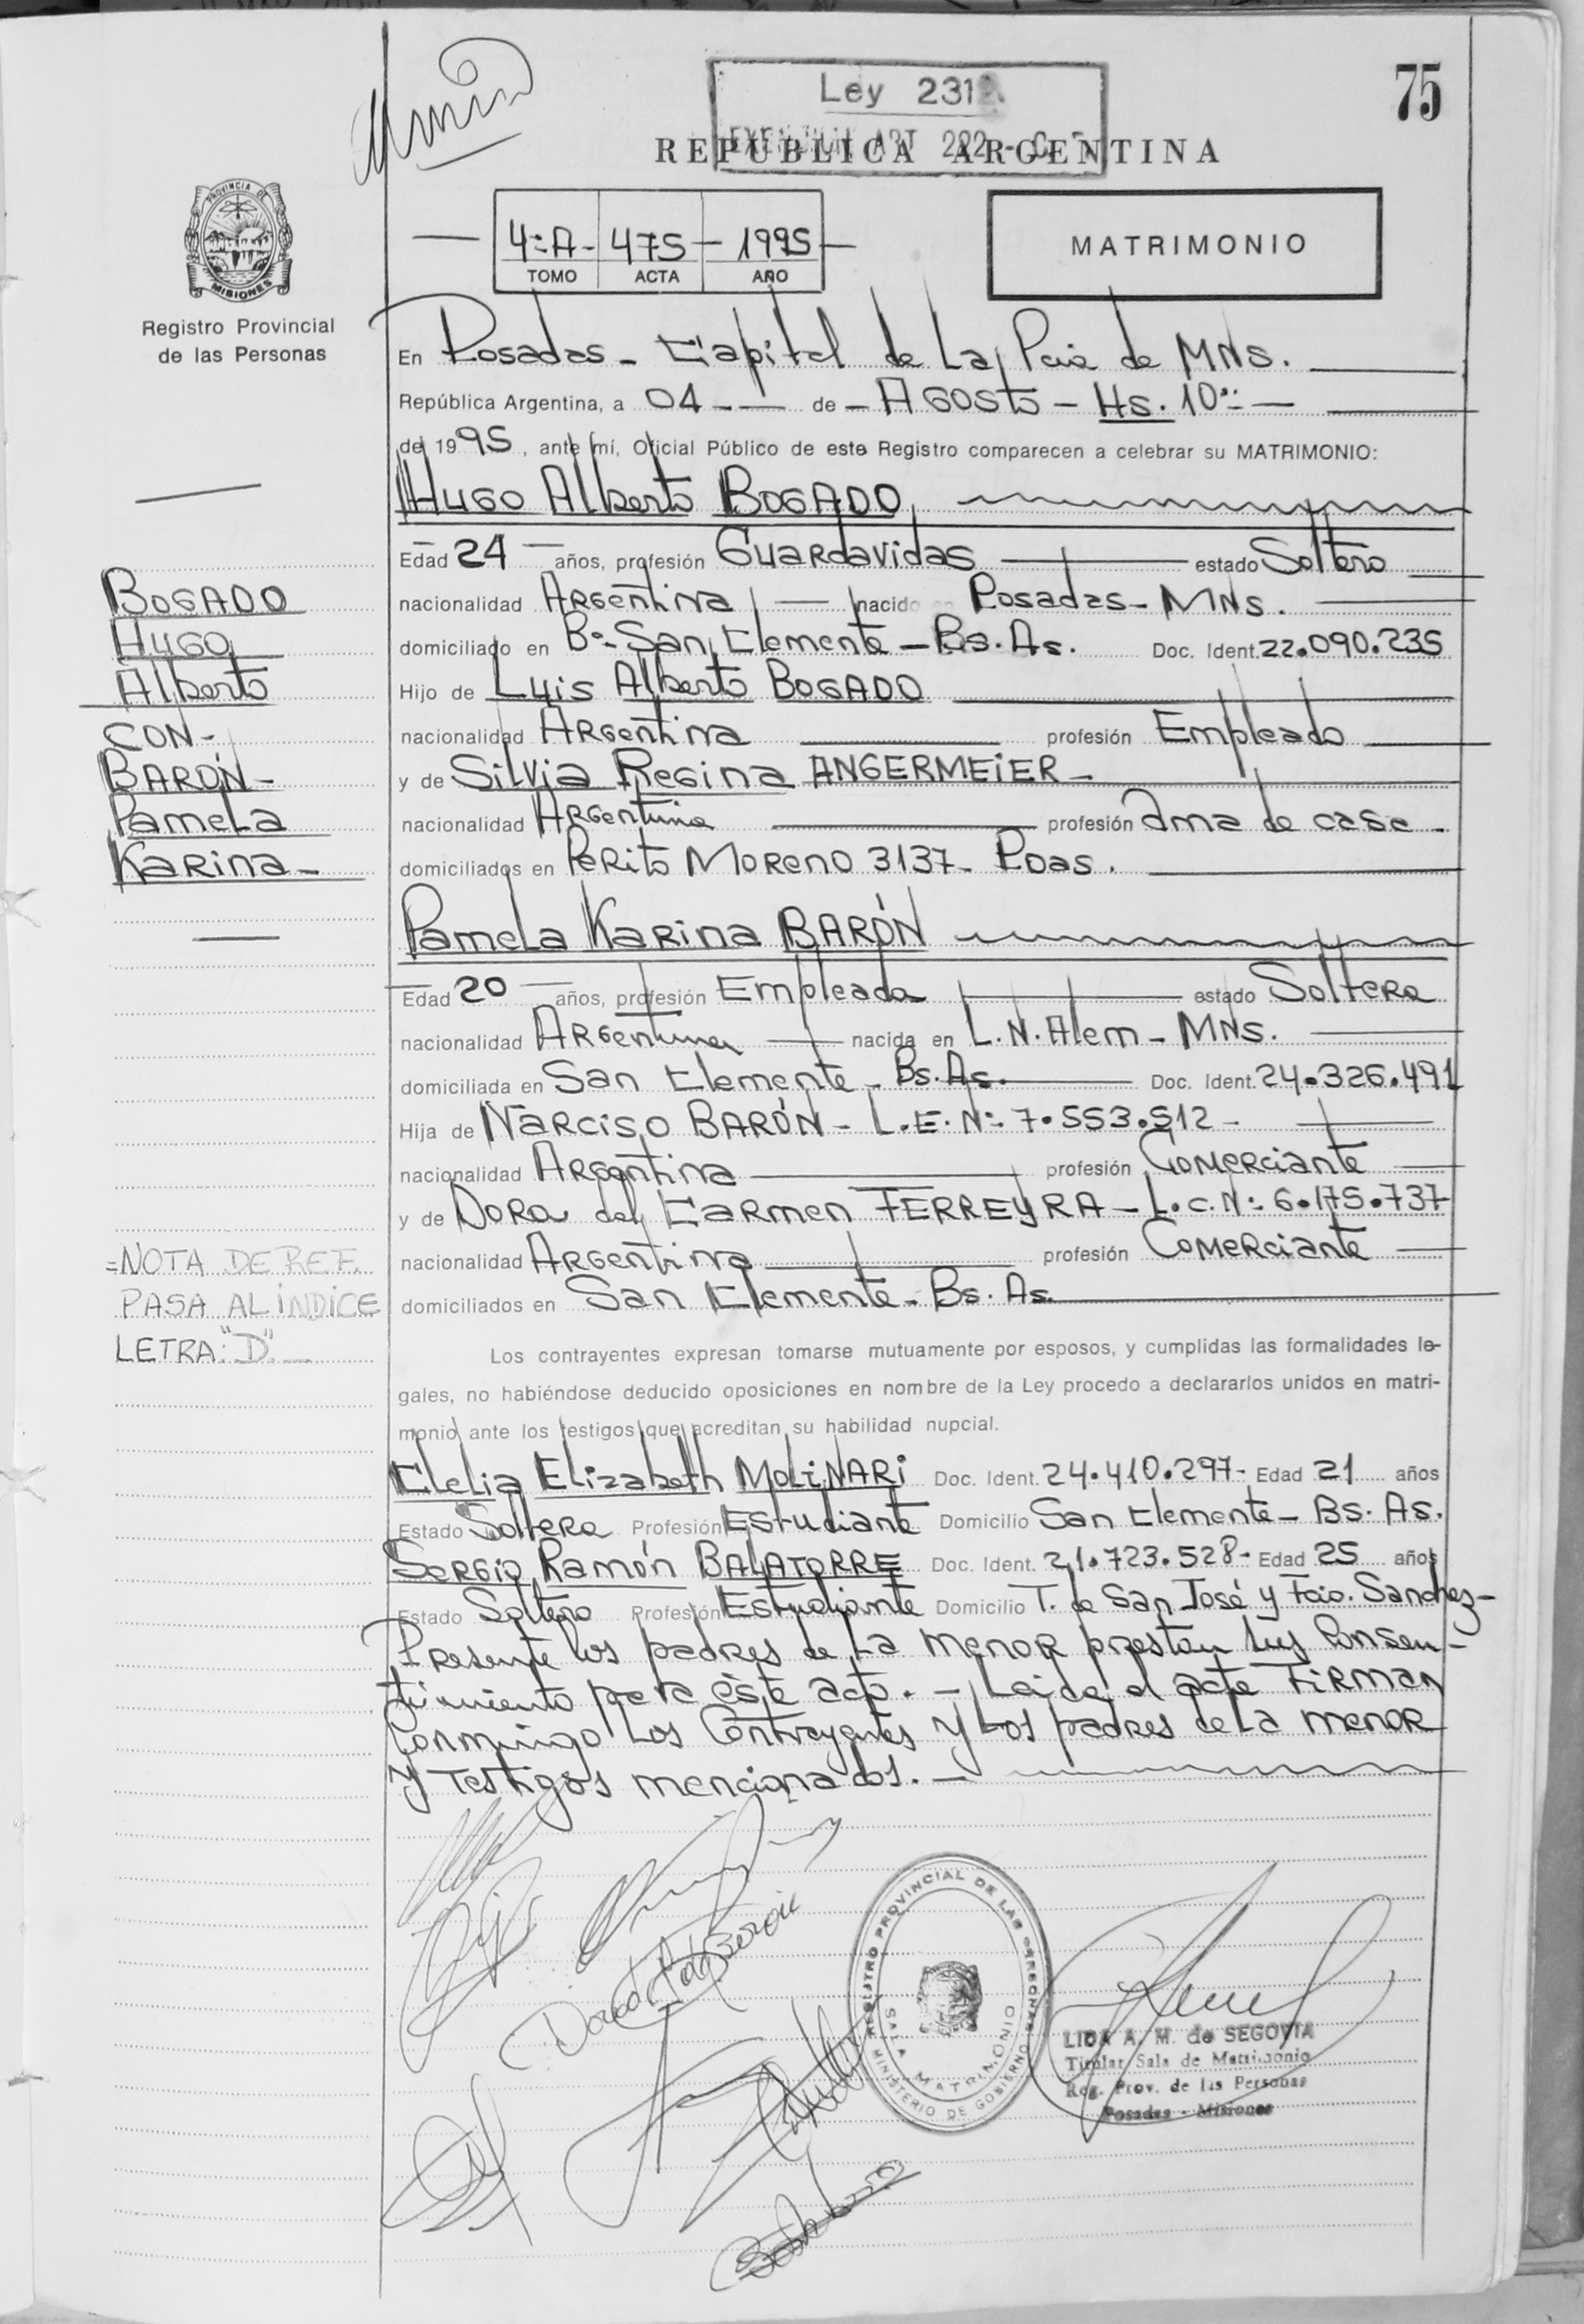 75
Ley 2312
REPUBLICA ARGENTINA
PROVINCIA DE
MISIONES
Registro Provincial
de las Personas
4º A - 475 - 1995 -
TOMO ACTA AÑO
MATRIMONIO
En Posadas - Capital de La Pcia de MNS.
República Argentina, a 04 - de - AGOSTO - Hs. 10
de 1995, ante mí, Oficial Público de este Registro comparecen a celebrar su MATRIMONIO:
HUGO Alberto BOGADO
Edad 24 años, profesión GUARDAVIDAS estado Soltero
nacionalidad ARGentina nacido en Posadas - MNS.
domiciliado en Bº San Clemente - Bs. As. Doc. Ident. 22.090.235
Hijo de Luis Alberto BOGADO
nacionalidad ARGentina profesión Empleado
y de Silvia Regina ANGERMEIER -
nacionalidad ARGentina profesión Ama de casa -
domiciliados en PERito MORENO 3137 - Pdas.
Pamela Karina BARÓN
Edad 20 años, profesión Empleada estado Soltera
nacionalidad ARGentina nacida en L. N. Alem - MNS.
domiciliada en San Clemente - Bs. As. Doc. Ident. 24.326.491
Hija de Narciso BARÓN - L.E. Nº 7.553.512 -
nacionalidad ARGentina profesión Comerciante
y de Dora del Carmen FERREYRA - L.C. Nº 6.175.737
nacionalidad ARGentina profesión Comerciante
domiciliados en San Clemente - Bs. As.
Los contrayentes expresan tomarse mutuamente por esposos, y cumplidas las formalidades le-
gales, no habiéndose deducido oposiciones en nombre de la Ley procedo a declararlos unidos en matri-
monio ante los testigos que acreditan su habilidad nupcial.
Clelia Elizabeth MOLINARI Doc. Ident. 24.410.297 - Edad 21 años
Estado Soltera Profesión Estudiante Domicilio San Clemente - Bs. As.
Sergio Ramón BALATORRE Doc. Ident. 21.723.528 - Edad 25 años
Estado Soltero Profesión Estudiante Domicilio T. de San José y Fcio. Sanchez -
Presente los padres de la menor prestan sus Consen-
timiento para éste acto. - Leída el acta Firman
Conmingo Los Contrayentes y Los padres de La menor
y testigos mencionados. -
BOGADO
HUGO
Alberto
CON -
BARÓN -
Pamela
Karina -
= NOTA DE REF.
PASA AL INDICE
LETRA: "D"
REGISTRO PROVINCIAL DE LAS PERSONAS
SALA MATRIMONIO
MINISTERIO DE GOBIERNO
LIDA A. M. de SEGOVIA
Titular Sala de Matrimonio
Reg. Prov. de las Personas
Posadas - Misiones